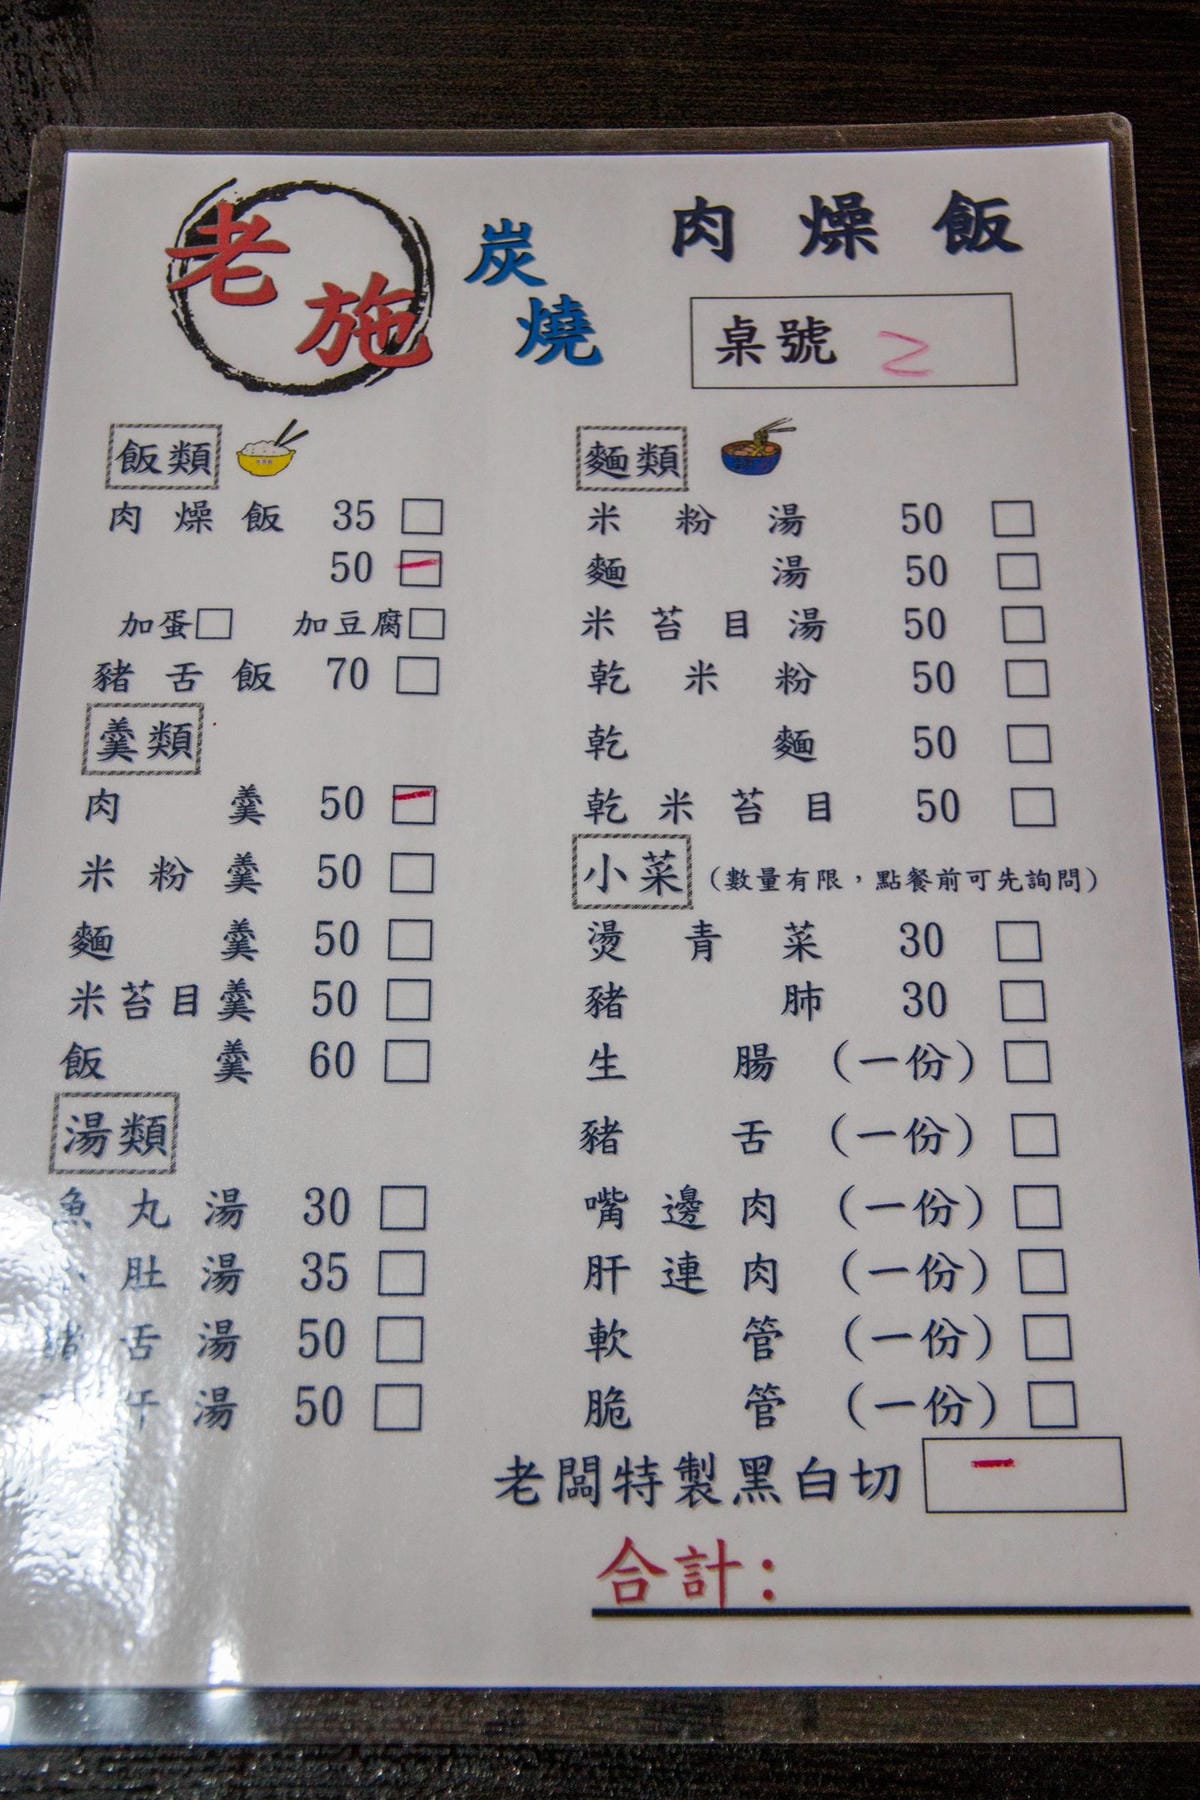 老施
炭燒
肉燥飯
桌號 2
飯類
肉燥飯 35
50 一
加蛋 加豆腐
豬舌飯 70
羹類
肉羹 50 一
米粉羹 50
麵羹 50
米苔目羹 50
飯羹 60
湯類
魚丸湯 30
肚湯 35
豬舌湯 50
湯 50
麵類
米粉湯 50
麵湯 50
米苔目湯 50
乾米粉 50
乾麵 50
乾米苔目 50
小菜 (數量有限，點餐前可先詢問)
燙青菜 30
豬肺 30
生腸 (一份)
豬舌 (一份)
嘴邊肉 (一份)
肝連肉 (一份)
軟管 (一份)
脆管 (一份)
老闆特製黑白切 一
合計: